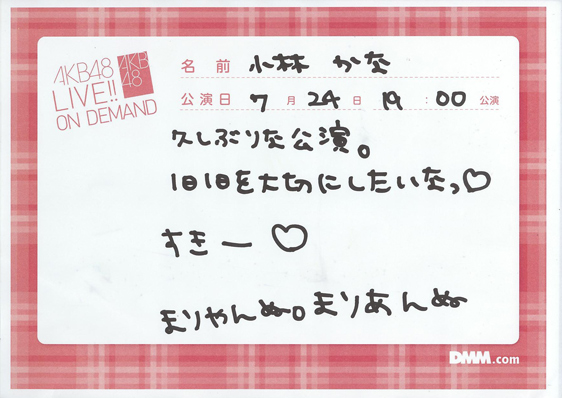 AKB48
LIVE!!
ON DEMAND
AKB
48
名前 小林 かな
公演日 7月24日 19:00 公演
久しぶりな公演。
1日1日を大切にしたいなっ♡
すきー ♡
まりやんぬ。まりあんぬ
DMM.com